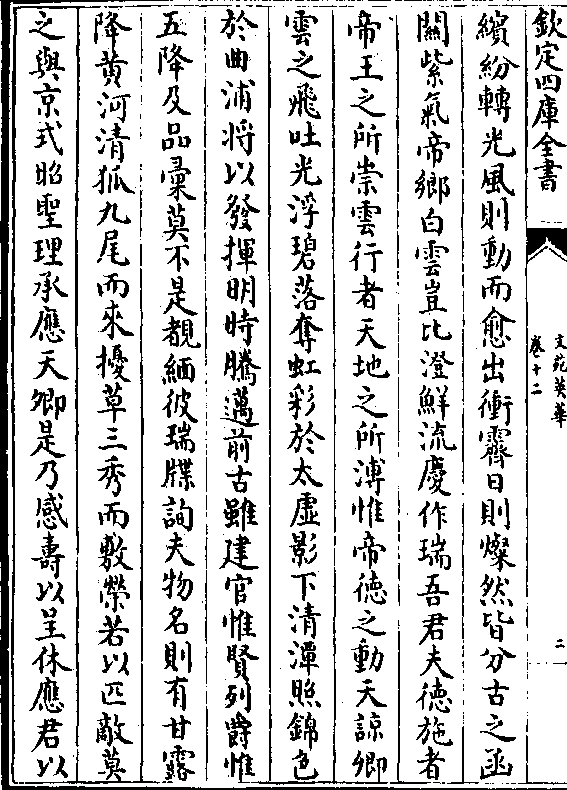 欽定四庫全書
文苑英華
卷十二
二
繽紛轉光風則動而愈出衝霽日則燦然皆分古之函
關紫氣帝鄉白雲豈比澄鮮流慶作瑞吾君夫徳施者
帝王之所崇雲行者天地之所溥惟帝徳之動天諒卿
雲之飛吐光浮碧落奪虹彩於太虚影下清潭照錦色
於曲浦将以發揮明時騰邁前古雖建官惟賢列爵惟
五降及品彚莫不是覩緬彼瑞牒詢夫物名則有甘露
降黄河清狐九尾而來擾草三秀而敷榮若以匹敵莫
之與京式昭聖理承應天卿是乃感壽以呈休應君以